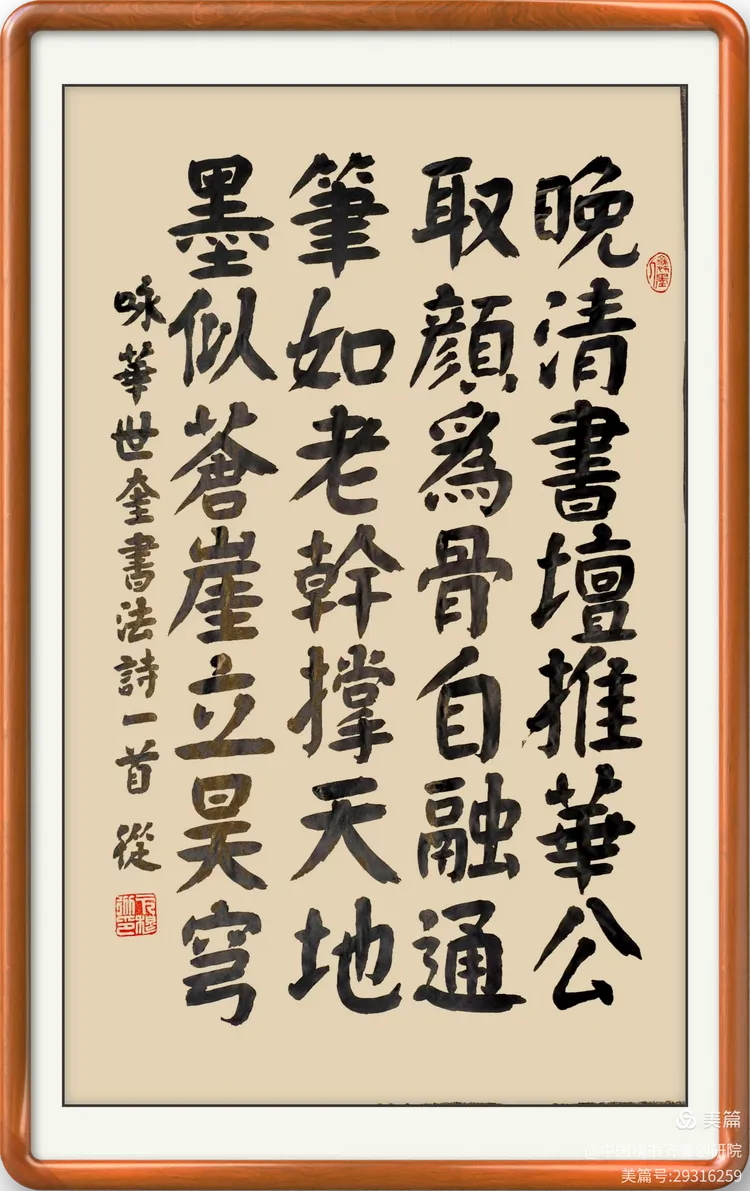 晚清書壇推華公
取顏爲骨自融通
筆如老幹撐天地
墨似蒼崖立昊穹
咏華世奎書法詩一首 從
美篇
美篇号:29316259